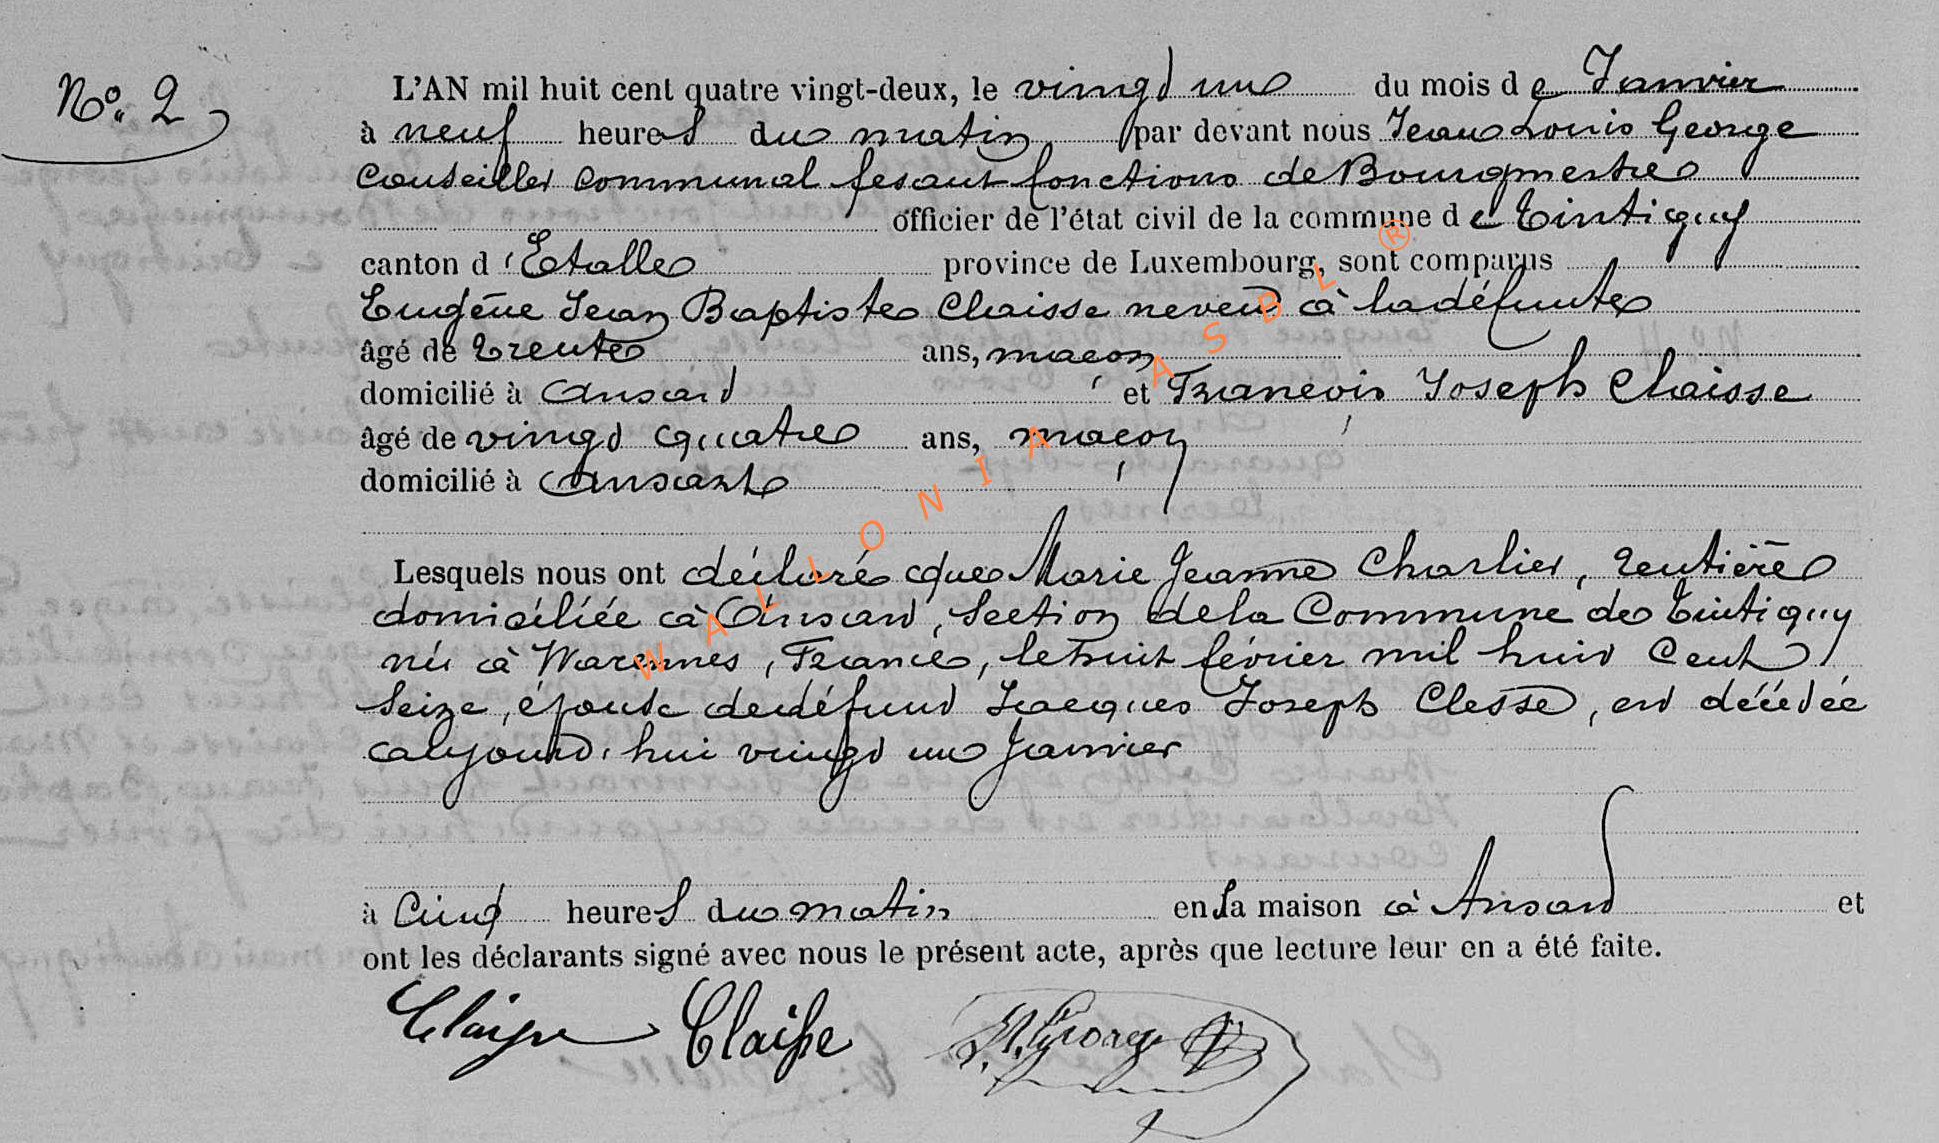 No. 2
L'AN mil huit cent quatre vingt-deux, le vingt un du mois de Janvier
à neuf heures du matin par devant nous Jean Louis George
Conseiller communal fesant fonctions de Bourgmestre
officier de l'état civil de la commune de Tintigny
canton d'Etalle province de Luxembourg, sont comparus
Eugène Jean Baptiste Claisse neveu à la défunte
âgé de trente ans, maçon
domicilié à Ansart et François Joseph Claisse
âgé de vingt quatre ans, maçon
domicilié à Ansart
Lesquels nous ont déclaré que Marie Jeanne Charlier, rentière
domiciliée à Ansart, Section de la Commune de Tintigny
née à Warennes, France, le huit février mil huit Cent
Seize, épouse de défunt Jacques Joseph Clesse, est décédée
aujourd'hui vingt un Janvier
à Cinq heures du matin en sa maison à Ansart et
ont les déclarants signé avec nous le présent acte, après que lecture leur en a été faite.
Claisse Claisse J. L. George
WALLONIA ASBL ®